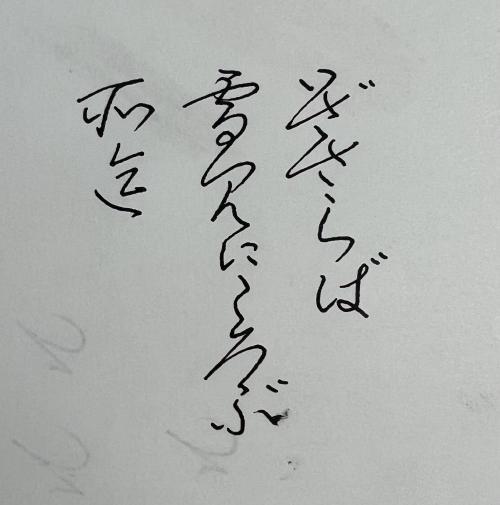 いざさらば
雪見にころぶ
所迄